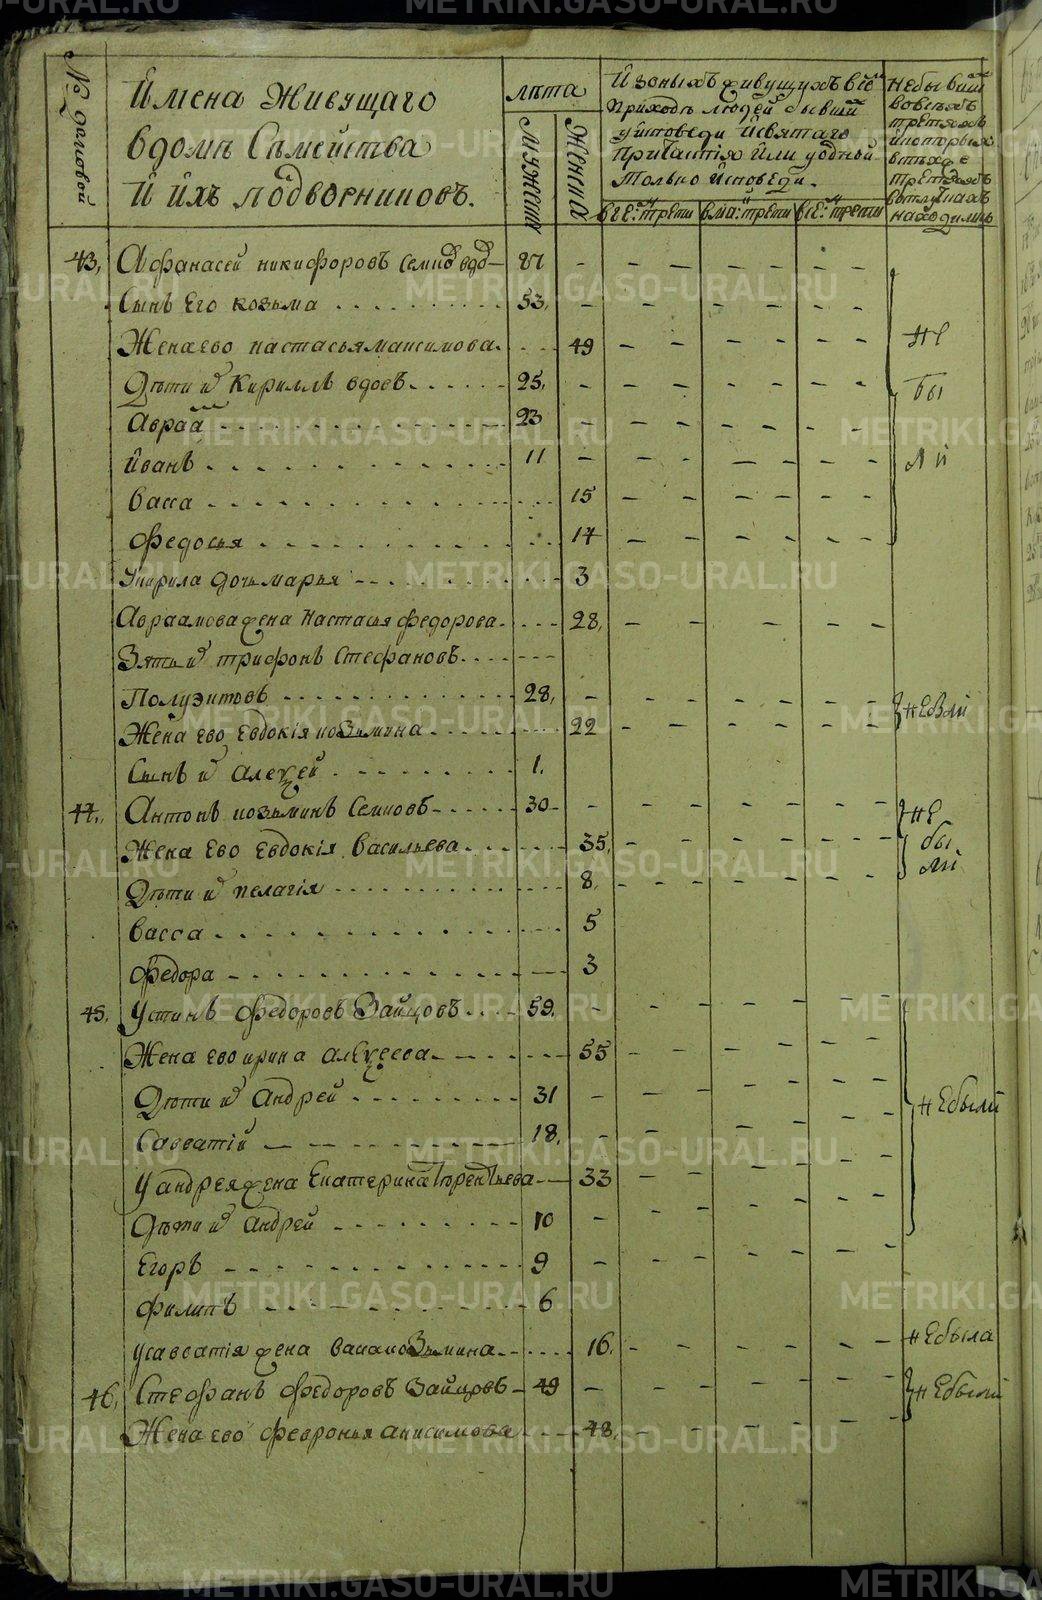 № дворовой
Имена живущаго
в доме семейства
и ихъ подворниковъ.
лѣта
мужеска
женска
Из оныхъ живущихъ в сем
приходе людей бывшии
у исповеди и святаго
причастия или у одной
только исповеди.
в ге: трети
в ма: трети
в се: трети
не бывши
во всехъ
третяхъ
и которыя
в техъ же
третяхъ
в отлучкахъ
находились
43, Афанасей никифоровъ Семков вдов 87
Сынъ Его козьма 53,
Жена ево настасья максимова. 49
Дѣти их Кириллъ вдовъ 25,
Аврам 23
Иванъ 11
васса 15
федосья 14
У кирила дочь марья 3
Авраамова жена настасья федорова 28,
Зять их трифонъ Стефановъ
Полуэктовъ 28,
Жена ево Евдокія козьмина 22
Сынъ их алексей 1.
Не
бы
ли
не были
44, Антонъ козьминъ Семковъ 30
Жена Ево Евдокія васильева 35,
Дѣти их пелагія 8,
васса 5
федора 3
не
бы
ли
45, Устинъ федоровъ Зайцовъ 59.
Жена ево ирина алексеева 55
Дѣти их андрей 31
Саватій 18,
У андрея жена Екатерина терентьева 33
Дѣти их андрей 10
Егоръ 9
филипъ 6
не были
У саватія жена козьмина 16. не была
46, Стефанъ федоровъ Зайцовъ 49 не были
Жена ево февронья анисимова 48,
METRIKI.GASO-URAL.RU